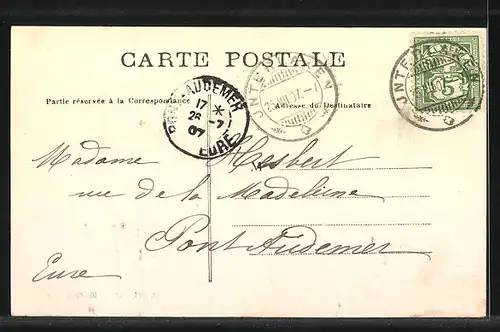 CARTE POSTALE
Partie réservée à la Correspondance
Adresse du Destinataire
PONT-AUDEMER
17 *
26 -7
07
EURE
INTERLAKEN
INTERLAKEN
5
Madame Hesbert
rue de la Madeleine
Pont Audemer
Eure